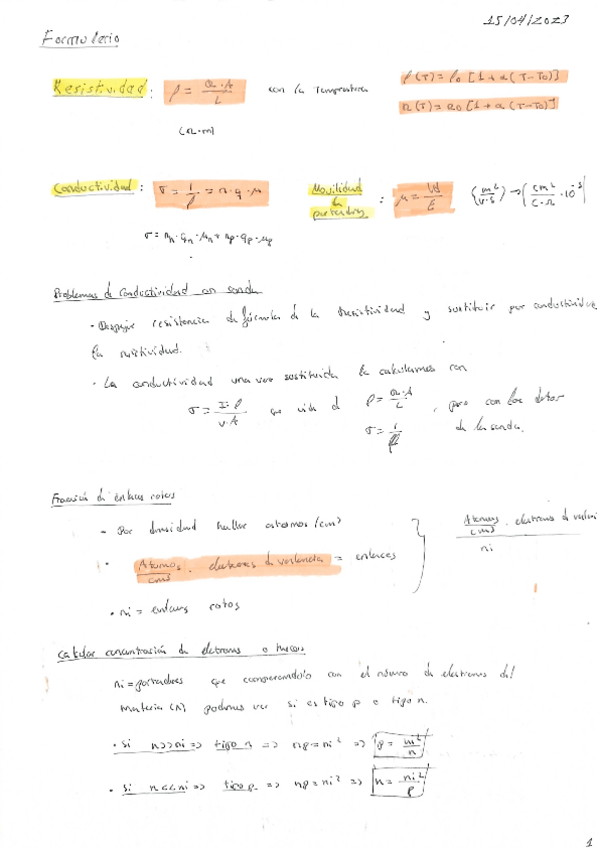 15/04/2023
Formulario
Resistividad: ρ = R·A / L con la temperatura ρ(T) = ρ0 [1+α(T-T0)]
R(T) = R0 [1+α(T-T0)]
(Ω·m)
Conductividad: σ = 1/ρ = n·q·μ Movilidad de portadores: μ = Vd/E (m²/V·s) → (cm²/C·Ω ·10⁻³)
σ = nn·qn·μn = np·qp·μp
Problemas de conductividad con sonda
· Despejar resistencia de fórmula de la resistividad y sustituir por conductividad
la resistividad.
· La conductividad una vez sustituida la calculamos con
σ = I·l / V·A que viene de ρ = R·A / L , pero con los datos
σ = 1/ρ de la sonda.
Fracción de enlaces rotos
- Por densidad hallar átomos/cm³
· Átomos/cm³ · electrones de valencia = enlaces
Átomos/cm³ · electrones de valen
ni
· ni = enlaces rotos
Calcular concentración de electrones o huecos
ni = portadores que comparándolo con el número de electrones del
material (n) podemos ver si es tipo p o tipo n.
· Si n>>ni => tipo n => np = ni² => p = ni²/n
· Si n<<ni => tipo p => np = ni² => n = ni²/p
1